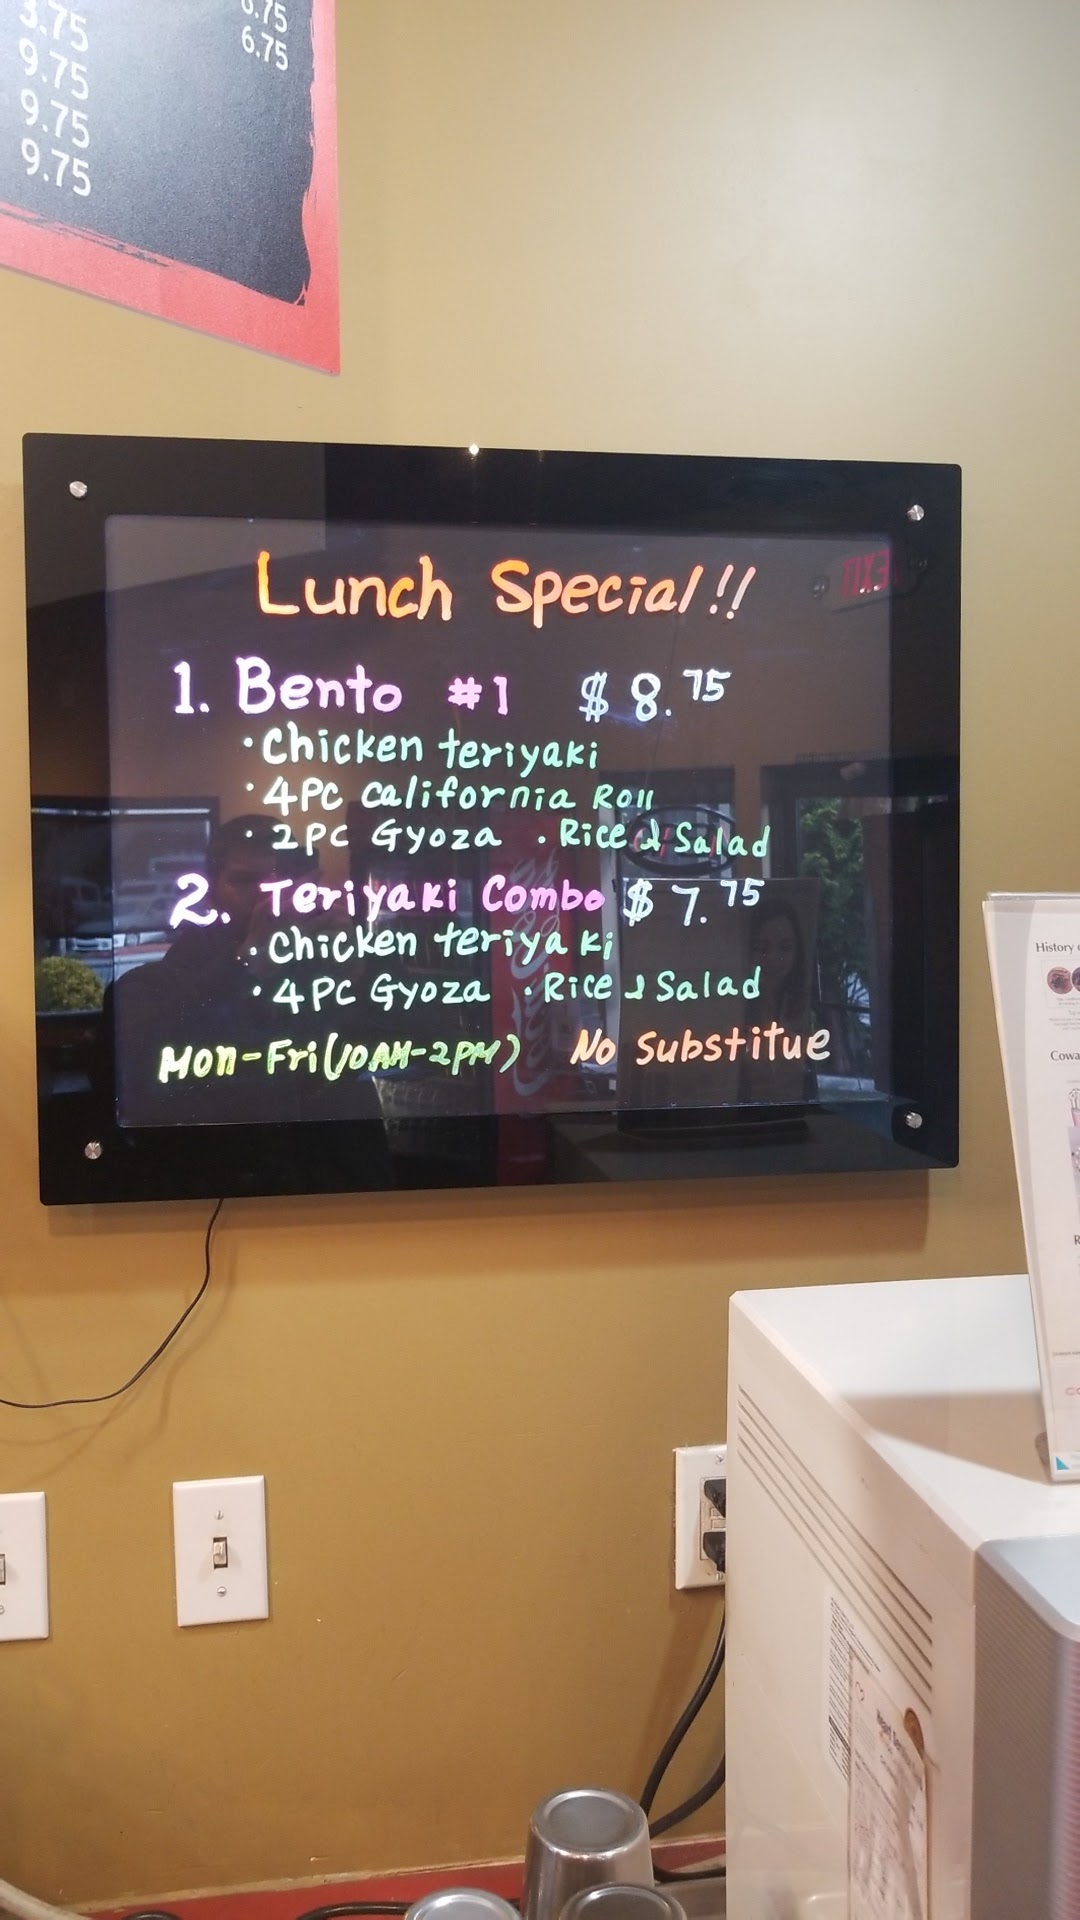 9.75
9.75
9.75
6.75
Lunch Special!!
1. Bento #1 $8.75
• Chicken teriyaki
• 4PC California Roll
• 2PC Gyoza • Rice & Salad
2. Teriyaki Combo $7.75
• Chicken teriyaki
• 4PC Gyoza • Rice & Salad
Mon-Fri(10AM-2PM) No Substitue
EXIT
History